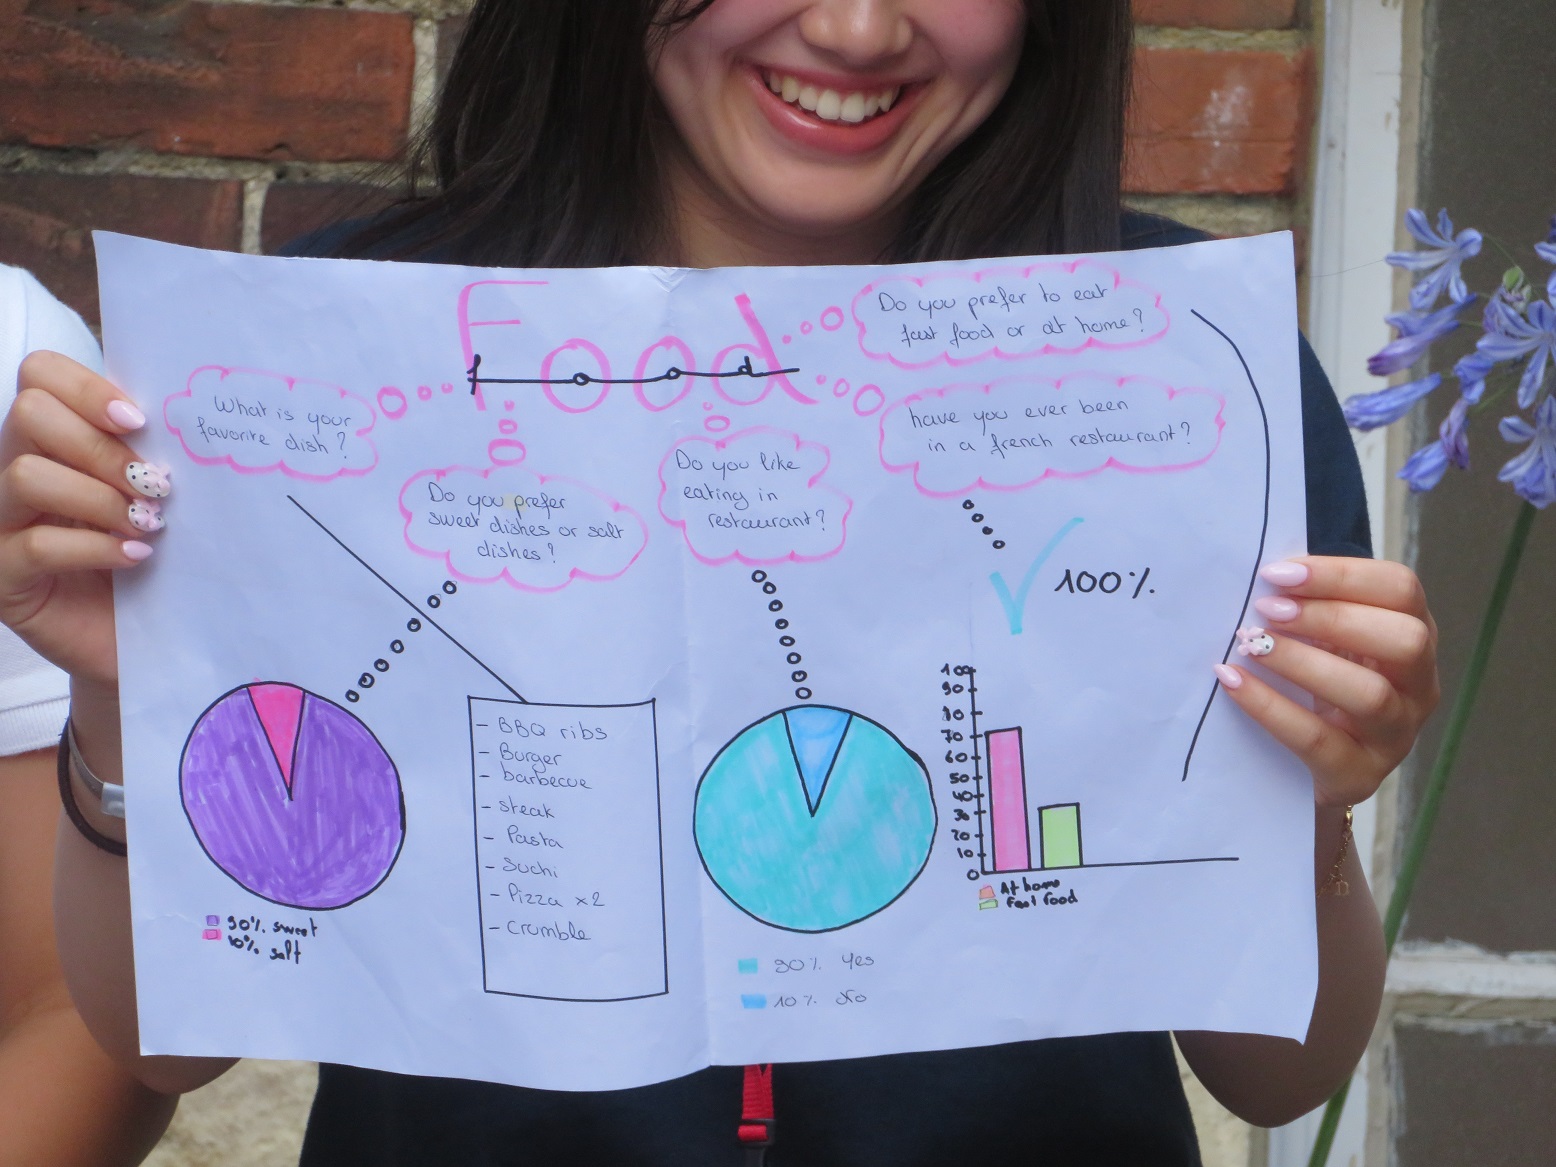 Food
food
Do you prefer to eat
fast food or at home?
What is your
favorite dish?
have you ever been
in a french restaurant?
Do you prefer
sweet dishes or salt
dishes?
Do you like
eating in
restaurant?
100%
- BBQ ribs
- Burger
- barbecue
- steak
- Pasta
- Suchi
- Pizza x2
- Crumble
100
90
80
70
60
50
40
30
20
10
0
At home
Fast food
90% sweet
10% salt
90% Yes
10% No